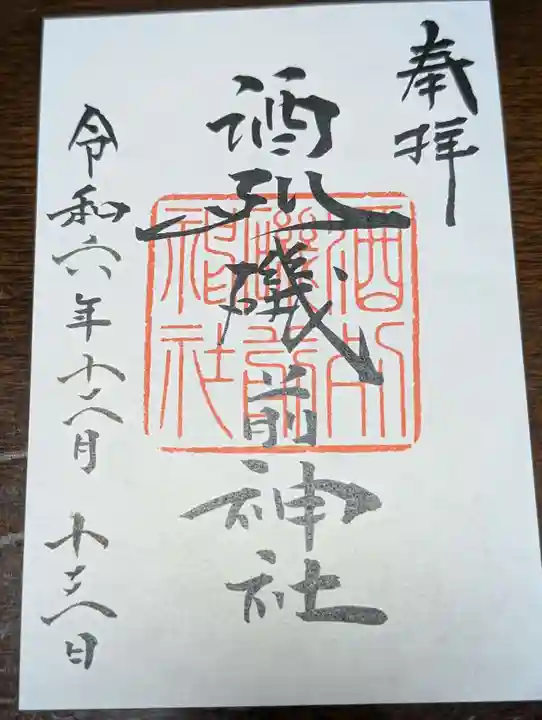 奉拝
酒列磯前神社
酒列磯前神社
令和六年十二月十六日